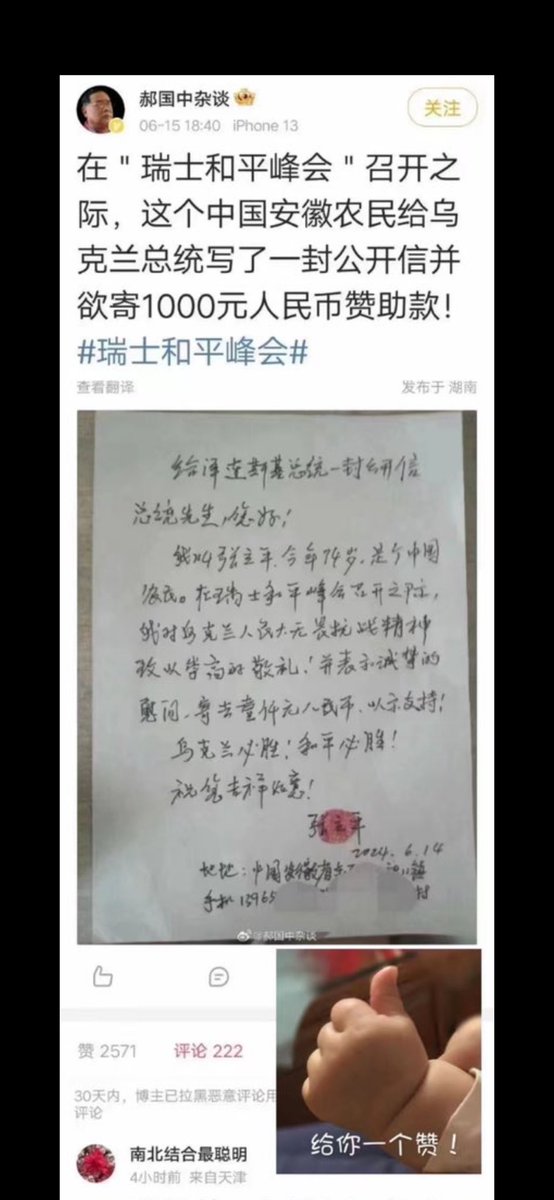 郝国中杂谈
关注
06-15 18:40 iPhone 13
在＂瑞士和平峰会＂召开之
际，这个中国安徽农民给乌
克兰总统写了一封公开信并
欲寄1000元人民币赞助款！
#瑞士和平峰会#
查看翻译
发布于 湖南
给泽连斯基总统一封公开信
总统先生，您好！
我叫张立平、今年74岁，是个中国
农民。在瑞士和平峰会召开之际，
我对乌克兰人民大无畏抗战精神
致以崇高的敬礼！并表示诚挚的
慰问，寄去壹仟元人民币，以示支持！
乌克兰必胜！和平必胜！
祝您吉祥如意！
张立平
2024.6.14
地址：中国安徽省 镇
手机 13965 村
@郝国中杂谈
赞 2571
评论 222
30天内，博主已拉黑恶意评论用
评论
南北结合最聪明
4小时前 来自天津
给你一个赞！